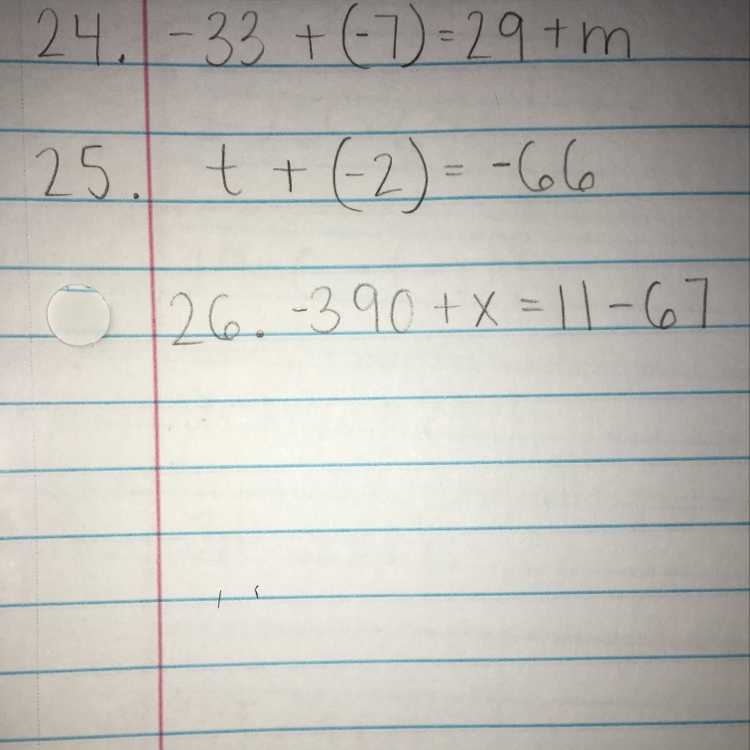 24. -33 + (-7) = 29 + m
25. t + (-2) = -66
26. -390 + x = 11 - 67